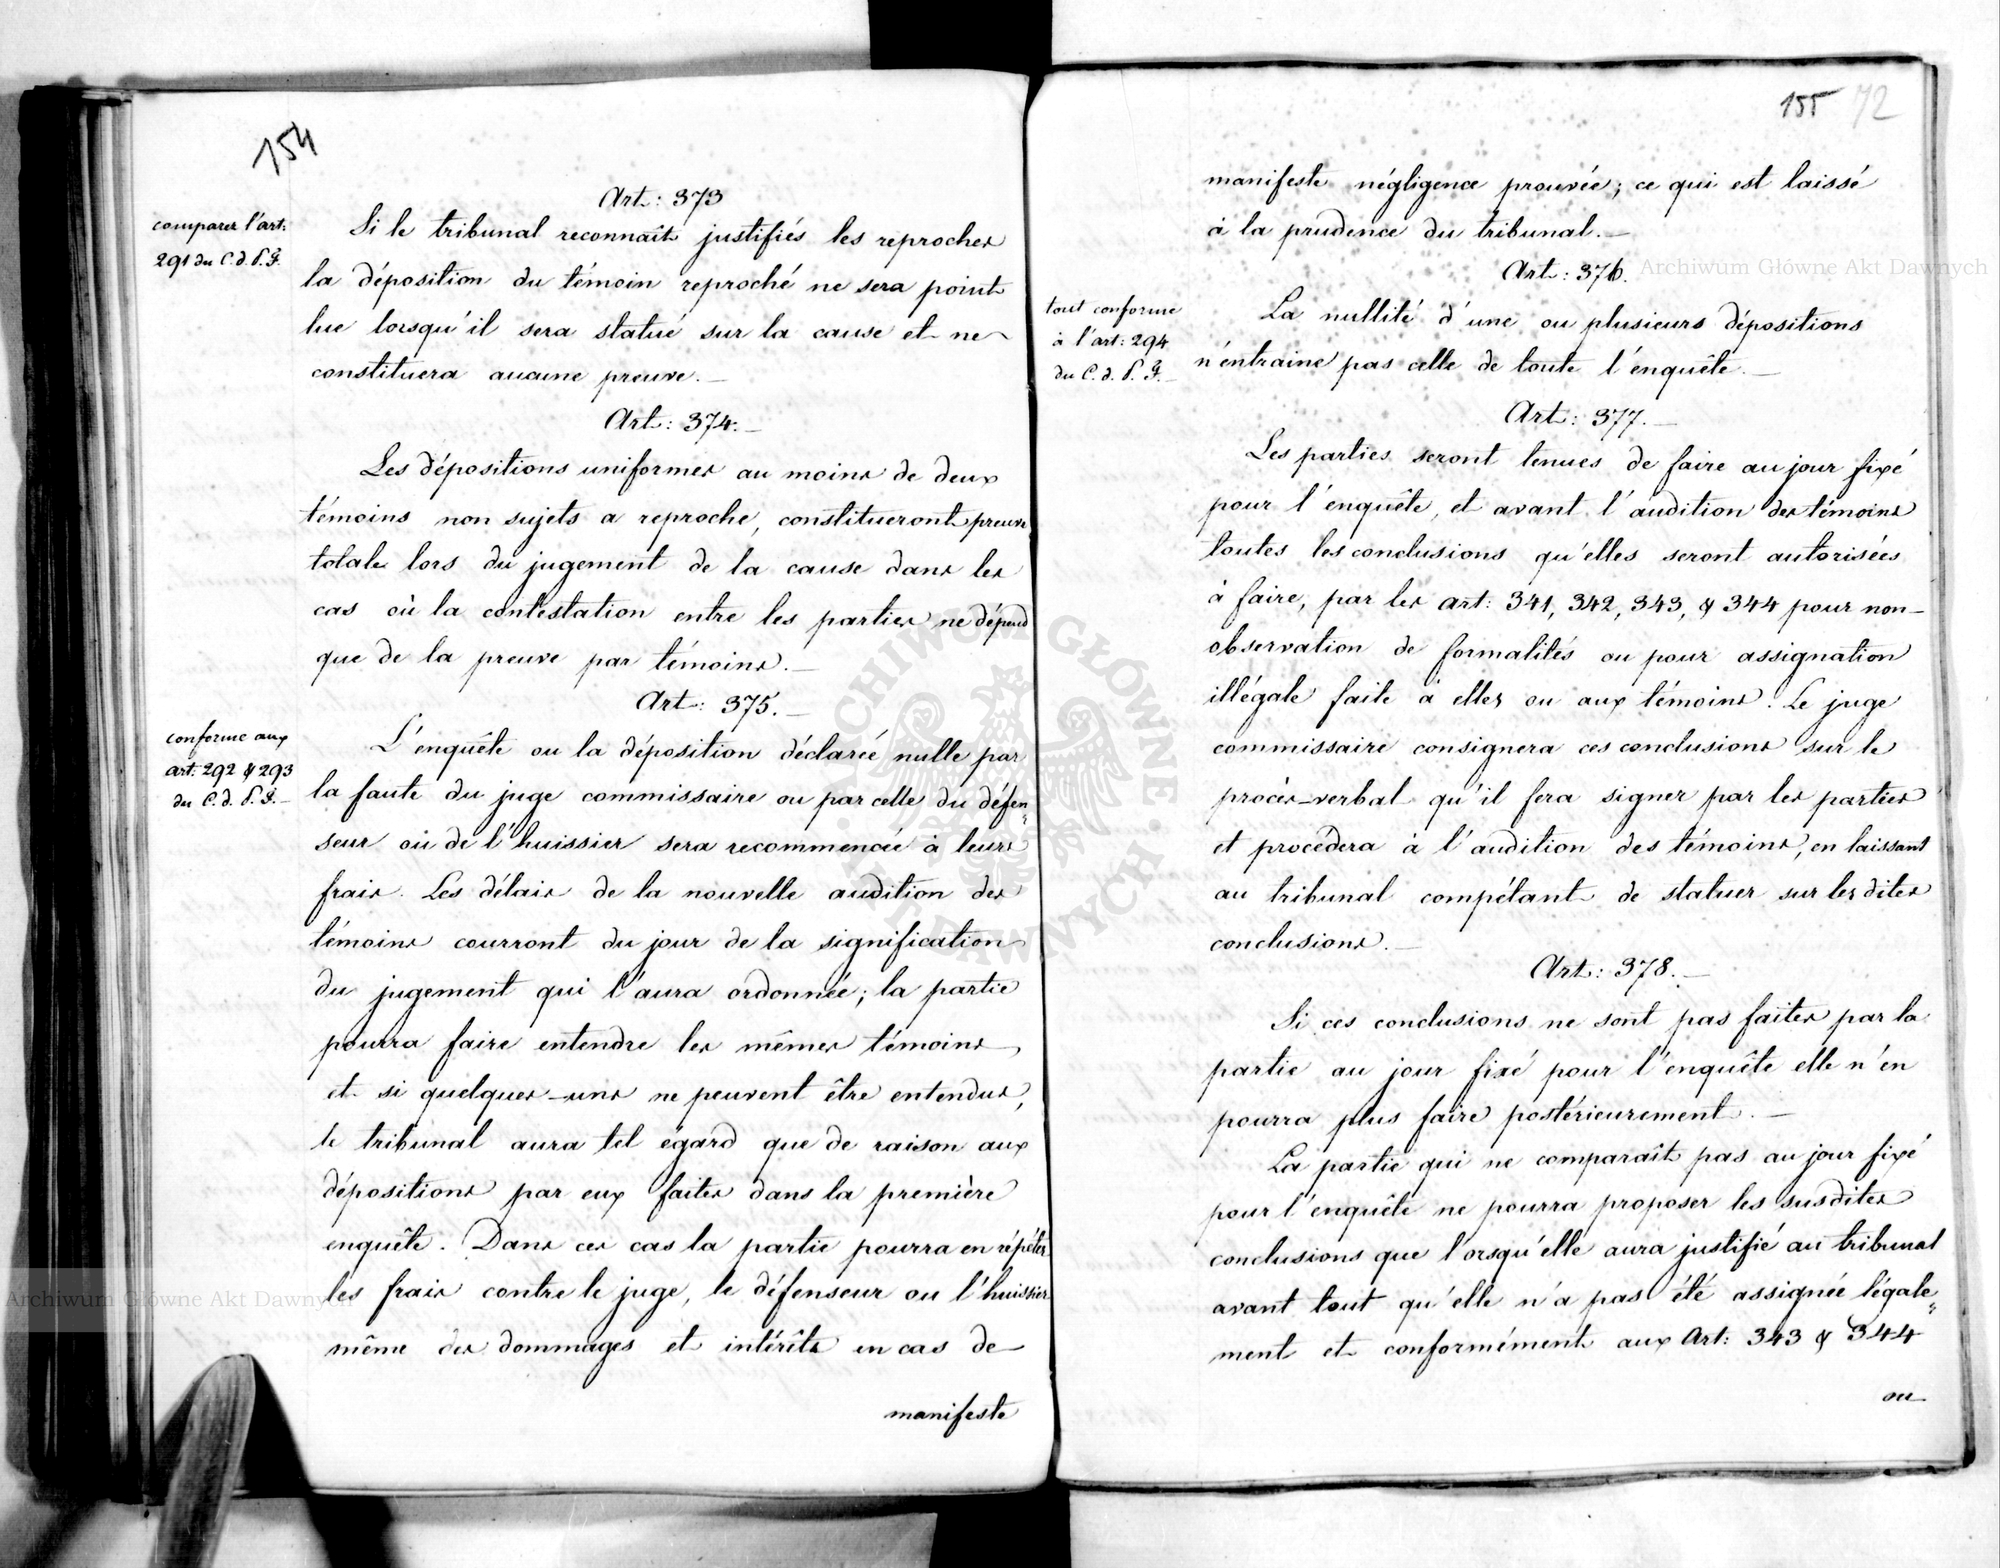 154
Art: 373
comparer l'art:
291 du C. d. P. F.
Si le tribunal reconnait justifiés les reproches
la déposition du témoin reproché ne sera point
lue lorsqu'il sera statué sur la cause et ne
constituera aucune preuve.—
Art: 374.—
Les dépositions uniformes au moins de deux
témoins non sujets a reproche, constitueront preuve
totale lors du jugement de la cause dans les
cas où la contestation entre les parties ne dépend
que de la preuve par témoins.—
Art: 375.—
conforme aux
art: 292 & 293
du C. d. P. F.—
L'enquête ou la déposition déclarée nulle par
la faute du juge commissaire ou par celle du défen„
seur ou de l'huissier sera recommencée à leurs
frais. Les délais de la nouvelle audition des
témoins courront du jour de la signification
du jugement qui l'aura ordonnée; la partie
pourra faire entendre les mêmes témoins
et si quelques-uns ne peuvent être entendus,
le tribunal aura tel égard que de raison aux
dépositions par eux faites dans la première
enquête. Dans ces cas la partie pourra en répéter
les frais contre le juge, le défenseur ou l'huissier
même des dommages et intérêts en cas de
manifeste
155 72
manifeste négligence prouvée; ce qui est laissé
à la prudence du tribunal.—
Art: 376.
tout conforme
à l'art: 294
du C. d. P. F.—
La nullité d'une ou plusieurs dépositions
n'entraine pas celle de toute l'enquête.—
Art: 377.—
Les parties seront tenues de faire au jour fixé
pour l'enquête, et avant l'audition des témoins
toutes les conclusions qu'elles seront autorisées
à faire, par les art: 341, 342, 343, & 344 pour non-
observation de formalités ou pour assignation
illégale faite à elles ou aux témoins. Le juge
commissaire consignera ces conclusions sur le
procès-verbal qu'il fera signer par les parties
et procédera à l'audition des témoins, en laissant
au tribunal compétant de statuer sur les dites
conclusions.—
Art: 378.—
Si ces conclusions ne sont pas faites par la
partie au jour fixé pour l'enquête elle n'en
pourra plus faire postérieurement.—
La partie qui ne comparait pas au jour fixé
pour l'enquête ne pourra proposer les susdites
conclusions que lorsqu'elle aura justifié au tribunal
avant tout qu'elle n'a pas été assignée légale„
ment et conformément aux Art: 343 & 344
ou
Archiwum Główne Akt Dawnych
Archiwum Główne Akt Dawnych
ARCHIWUM GŁÓWNE
AKT DAWNYCH